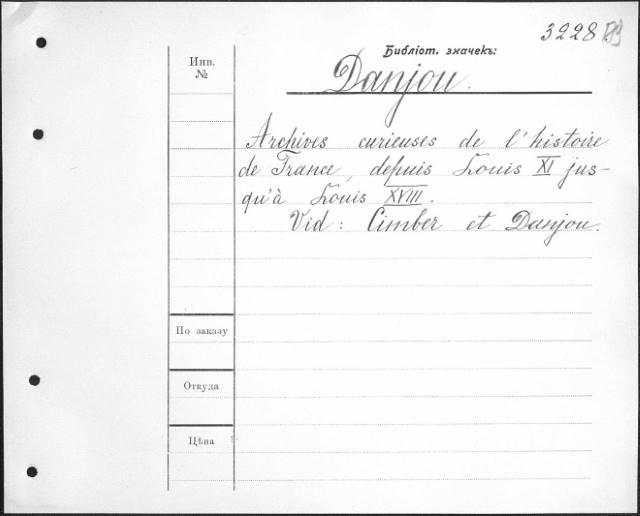 3228
Библіот. значекъ:
Инв.
№
Danjou.
Archives curieuses de l'histoire
de France, depuis Louis XI jus-
qu'à Louis XVIII.
Vid: Cimber et Danjou.
По заказу
Откуда
Цѣна